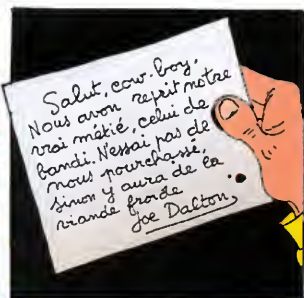 Salut, cow-boy,
Nous avon reprit notre
vrai métié, celui de
bandi. N'essai pas de
nous pourchassé,
sinon y aura de la
viande froide
Joe Dalton